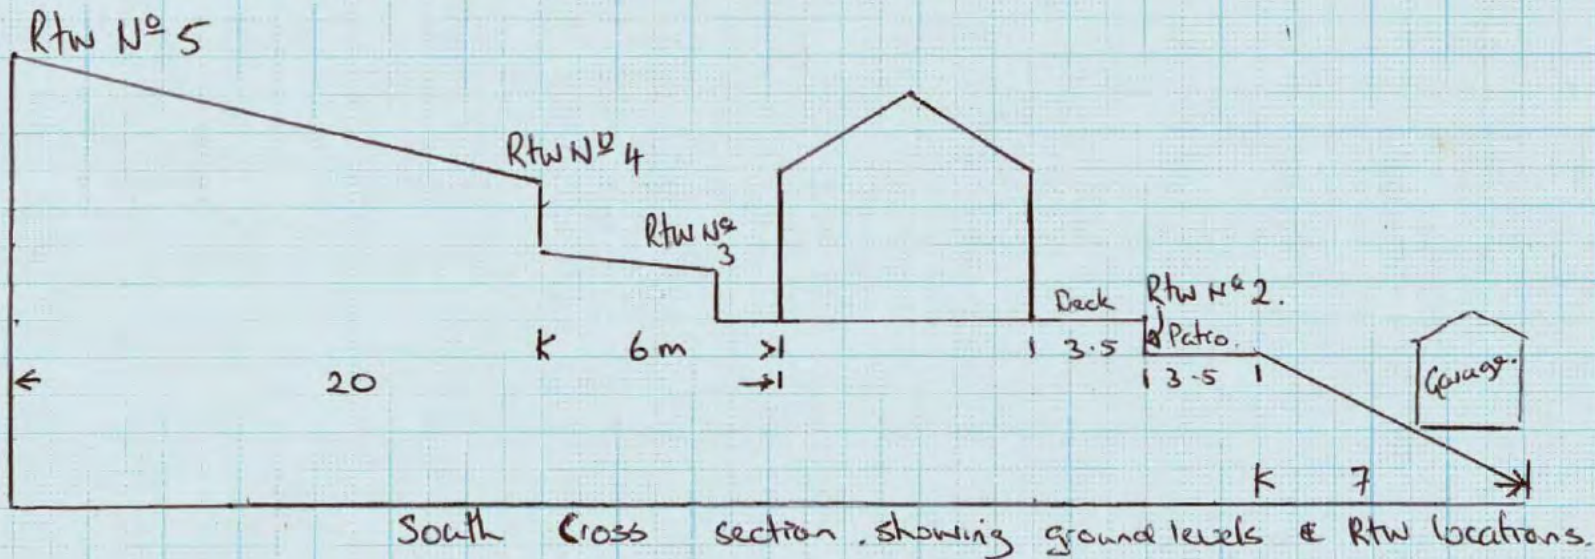 Rtw Nº 5
Rtw Nº 4
Rtw Nº
3
Deck
Rtw Nº 2.
Patio.
Garage.
6m
3.5
20
3.5
7
South Cross section. showing ground levels & Rtw locations